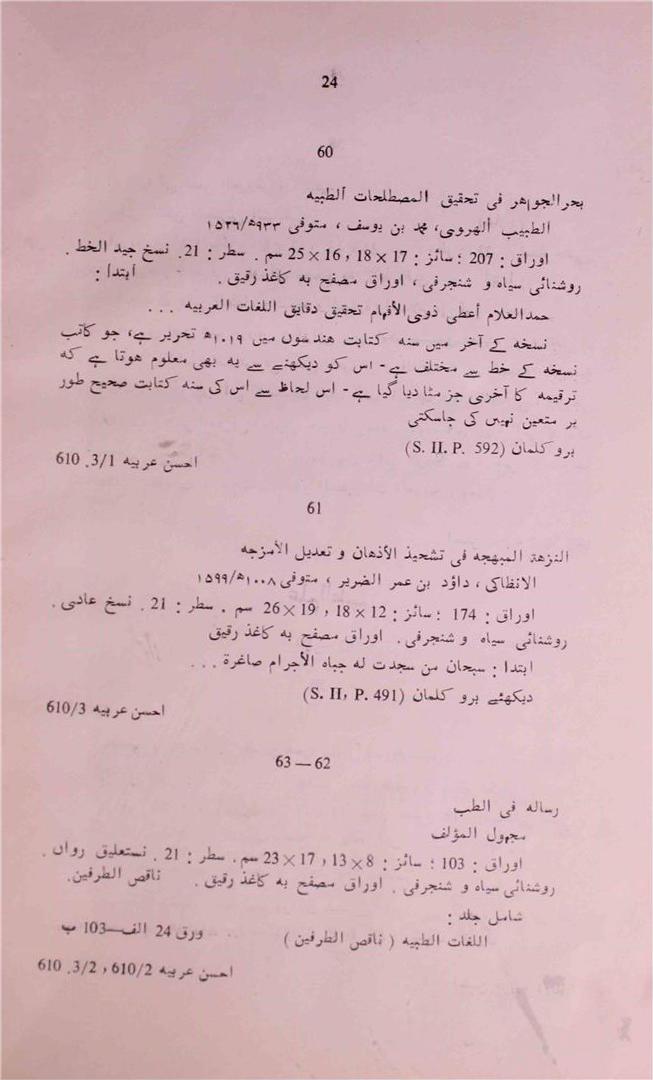 24
60
بحر الجواهر فی تحقیق المصطلحات الطبیه
الطبیب الهروی، محمد بن یوسف ، متوفی ۹۳۳ھ/۱۵۲٦
اوراق : 207 ؛ سائز : 17 × 18 ، 16 × 25 سم . سطر : 21. نسخ جید الخط .
روشنائی سیاه و شنجرفی ، اوراق مصفح به کاغذ رقیق . ابتدا :
حمد العلام أعطی ذوی الأفهام تحقیق دقایق اللغات العربیه ...
نسخه کے آخر میں سنه کتابت هندسوں میں ۱۰۱۹ھ تحریر ہے، جو کاتب
نسخه کے خط سے مختلف ہے - اس کو دیکھنے سے یه بھی معلوم هوتا ہے که
ترقیمه کا آخری جز مٹا دیا گیا ہے - اس لحاظ سے اس کی سنه کتابت صحیح طور
پر متعین نہیں کی جاسکتی
برو کلمان (S. II. P. 592)
احسن عربیه 3/1 .610
61
النزهة المبهجه فی تشحیذ الأذهان و تعدیل الأمزجه
الانطاکی ، داؤد بن عمر الضریر ، متوفی ۱۰۰۸ھ/۱۵۹۹
اوراق : 174 ؛ سائز : 12 × 18 ، 19 × 26 سم . سطر : 21 . نسخ عادی .
روشنائی سیاه و شنجرفی . اوراق مصفح به کاغذ رقیق
ابتدا : سبحان من سجدت له جباه الأجرام صاغرة ...
دیکھئے برو کلمان (S. II, P. 491)
احسن عربیه 610/3
62 — 63
رساله فی الطب
مجهول المؤلف
اوراق : 103 ؛ سائز : 8 × 13 ، 17 × 23 سم . سطر : 21 . نستعلیق رواں .
روشنائی سیاه و شنجرفی . اوراق مصفح به کاغذ رقیق . ناقص الطرفین.
شامل جلد :
اللغات الطبیه ( ناقص الطرفین ) ورق 24 الف—103 ب
احسن عربیه 610/2 ، 3/2 .610